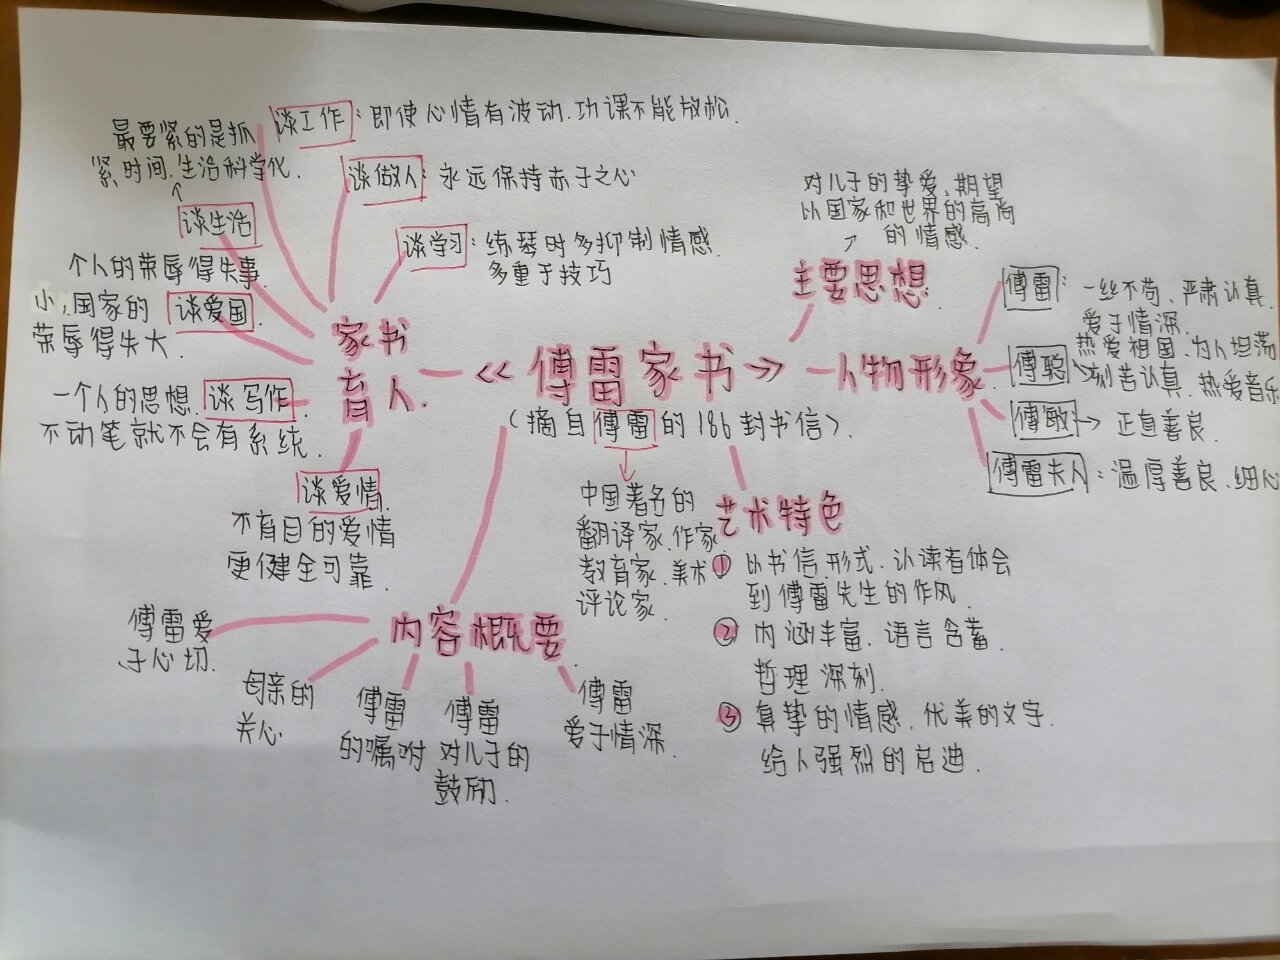 谈工作：即使心情有波动.功课不能放松.
最要紧的是抓
紧时间.生活科学化.
谈生活
谈做人：永远保持赤子之心
谈学习：练琴时多抑制情感
多重于技巧
个人的荣辱得失事
小,国家的
荣辱得失大.
谈爱国
家书
育人.
一个人的思想.
不动笔就不会有系统.
谈写作
谈爱情
不盲目的爱情
更健全可靠.
《傅雷家书》
(摘自傅雷的186封书信).
中国著名的
翻译家.作家
教育家.美术
评论家.
对儿子的挚爱、期望
以国家和世界的高尚
的情感.
主要思想
人物形象
傅雷：一丝不苟、严肃认真
爱子情深.
傅聪
热爱祖国.为人坦荡
刻苦认真.热爱音乐
傅敏→正直善良.
傅雷夫人：温厚善良.细心
艺术特色
①以书信形式.让读者体会
到傅雷先生的作风.
②内涵丰富.语言含蓄.
哲理深刻.
③真挚的情感.优美的文字.
给人强烈的启迪.
内容概要.
傅雷爱
子心切.
母亲的
关心
傅雷
的嘱咐
傅雷
对儿子的
鼓励.
傅雷
爱子情深.